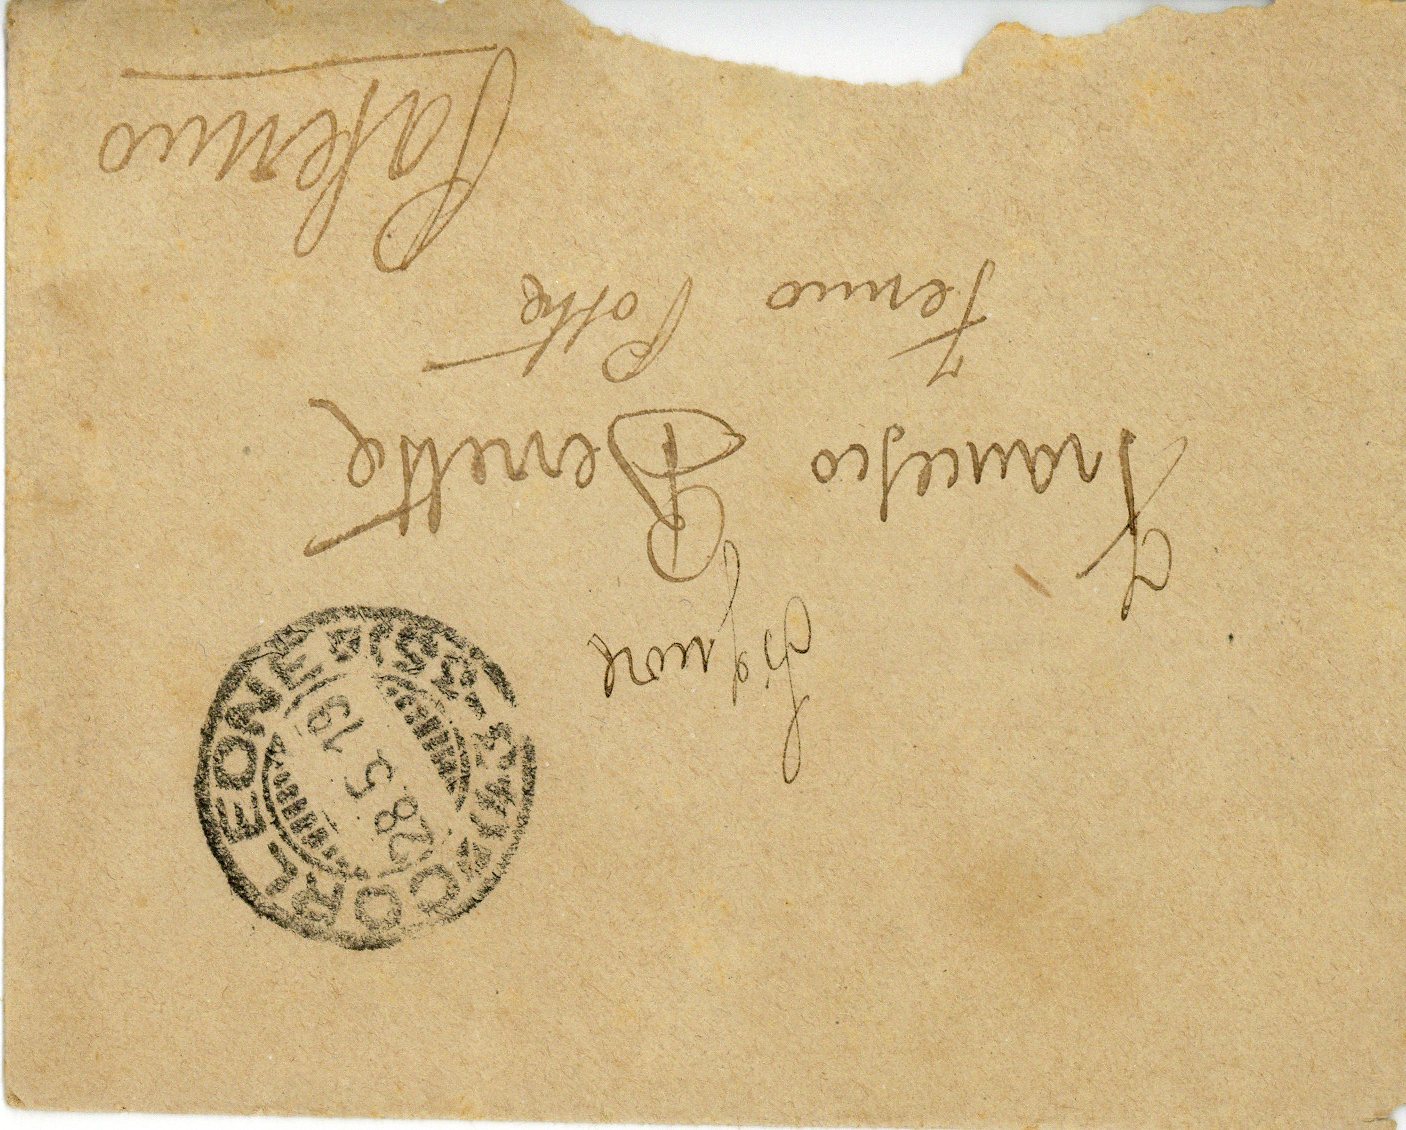 Signore
Francesco Berretta
Fermo Posta
Palermo
CORLEONE
28.5.19